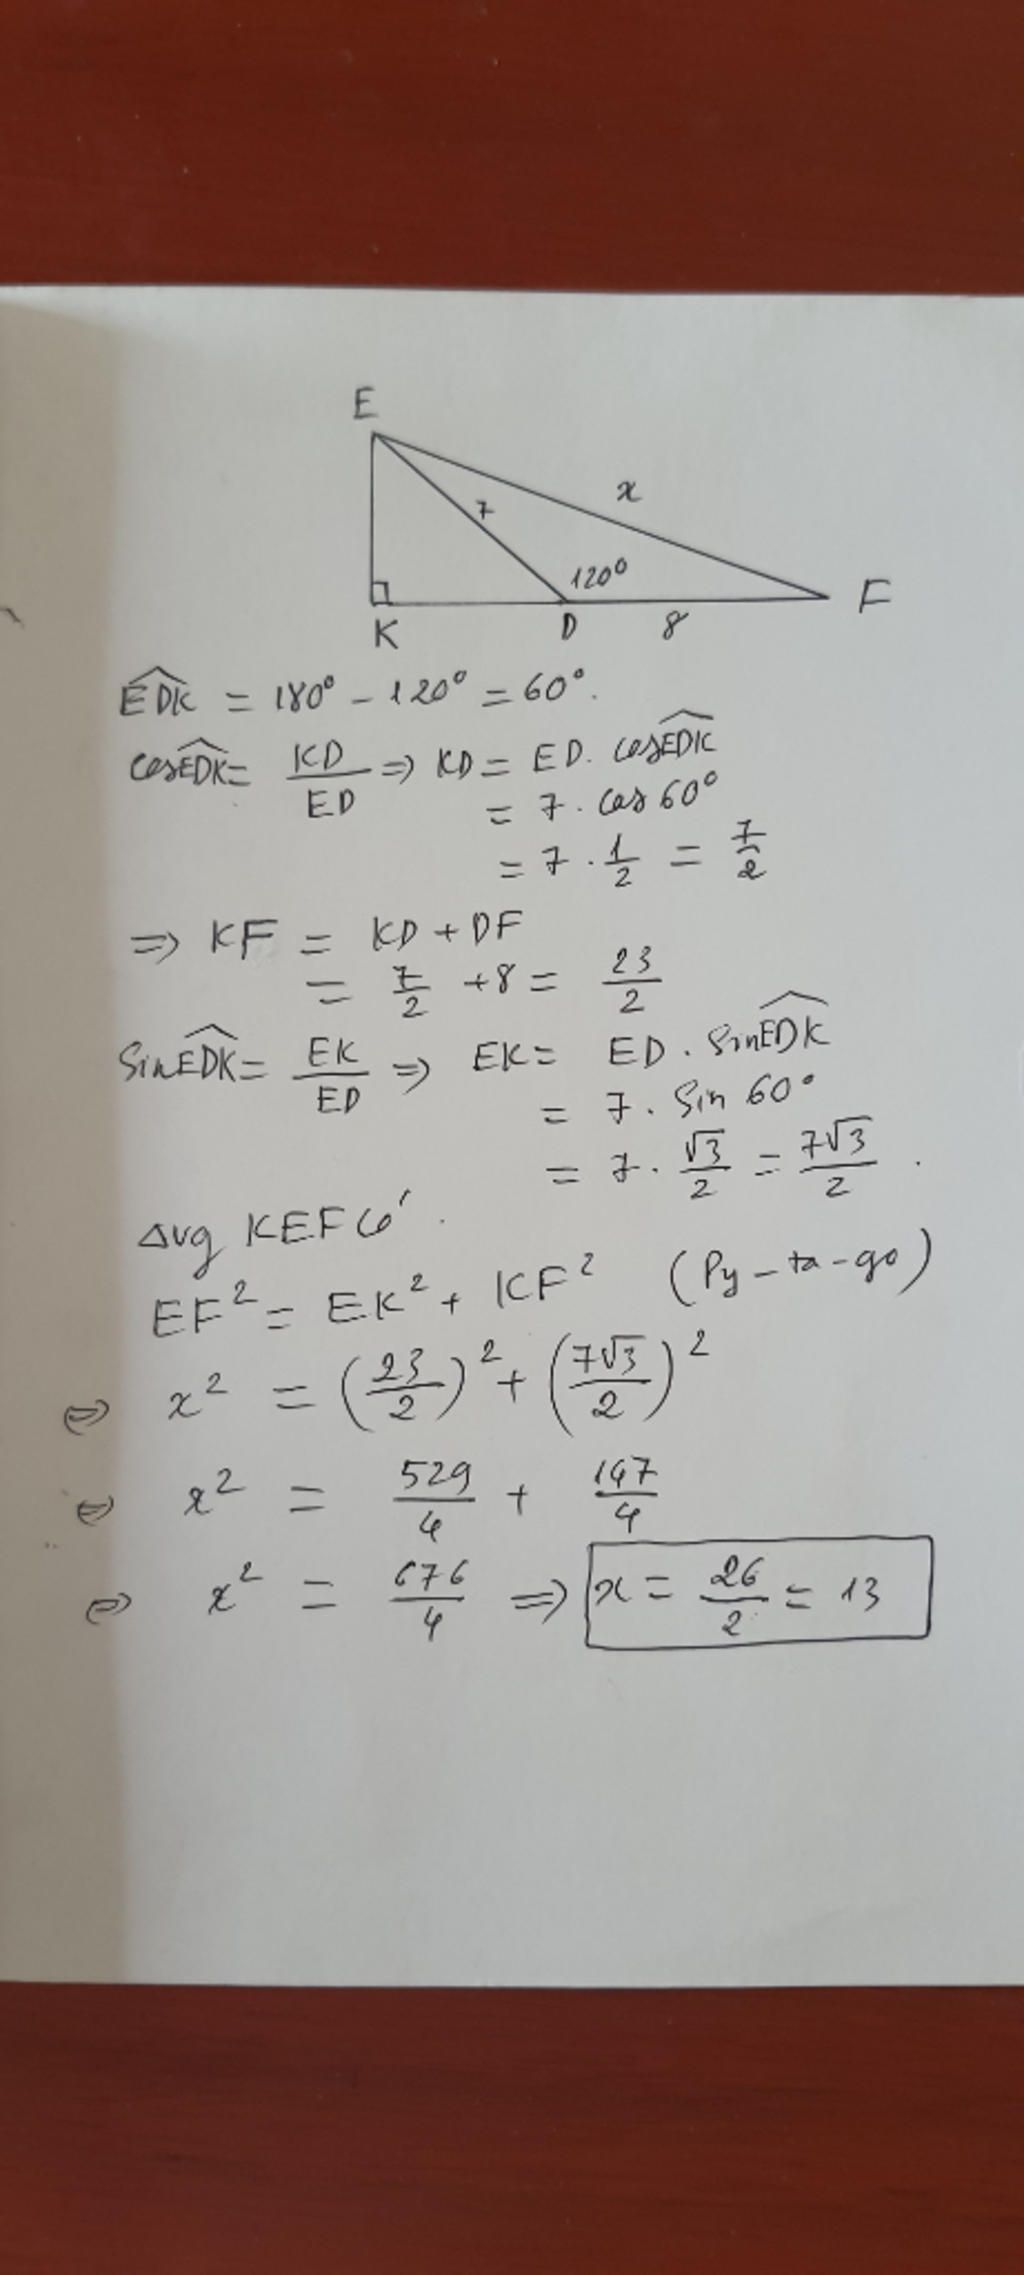 E
x
7
120°
F
K D 8
EDK̂ = 180° - 120° = 60°.
cosEDK̂ = KD/ED ⇒ KD = ED. cosEDK̂
= 7. cos 60°
= 7. 1/2 = 7/2
⇒ KF = KD + DF
= 7/2 + 8 = 23/2
SinEDK̂ = EK/ED ⇒ EK = ED. SinEDK̂
= 7. Sin 60°
= 7. √3/2 = 7√3/2.
Δvg KEF có.
EF² = EK² + KF² (Py-ta-go)
⇔ x² = (23/2)² + (7√3/2)²
⇔ x² = 529/4 + 147/4
⇔ x² = 676/4 ⇒ x = 26/2 = 13